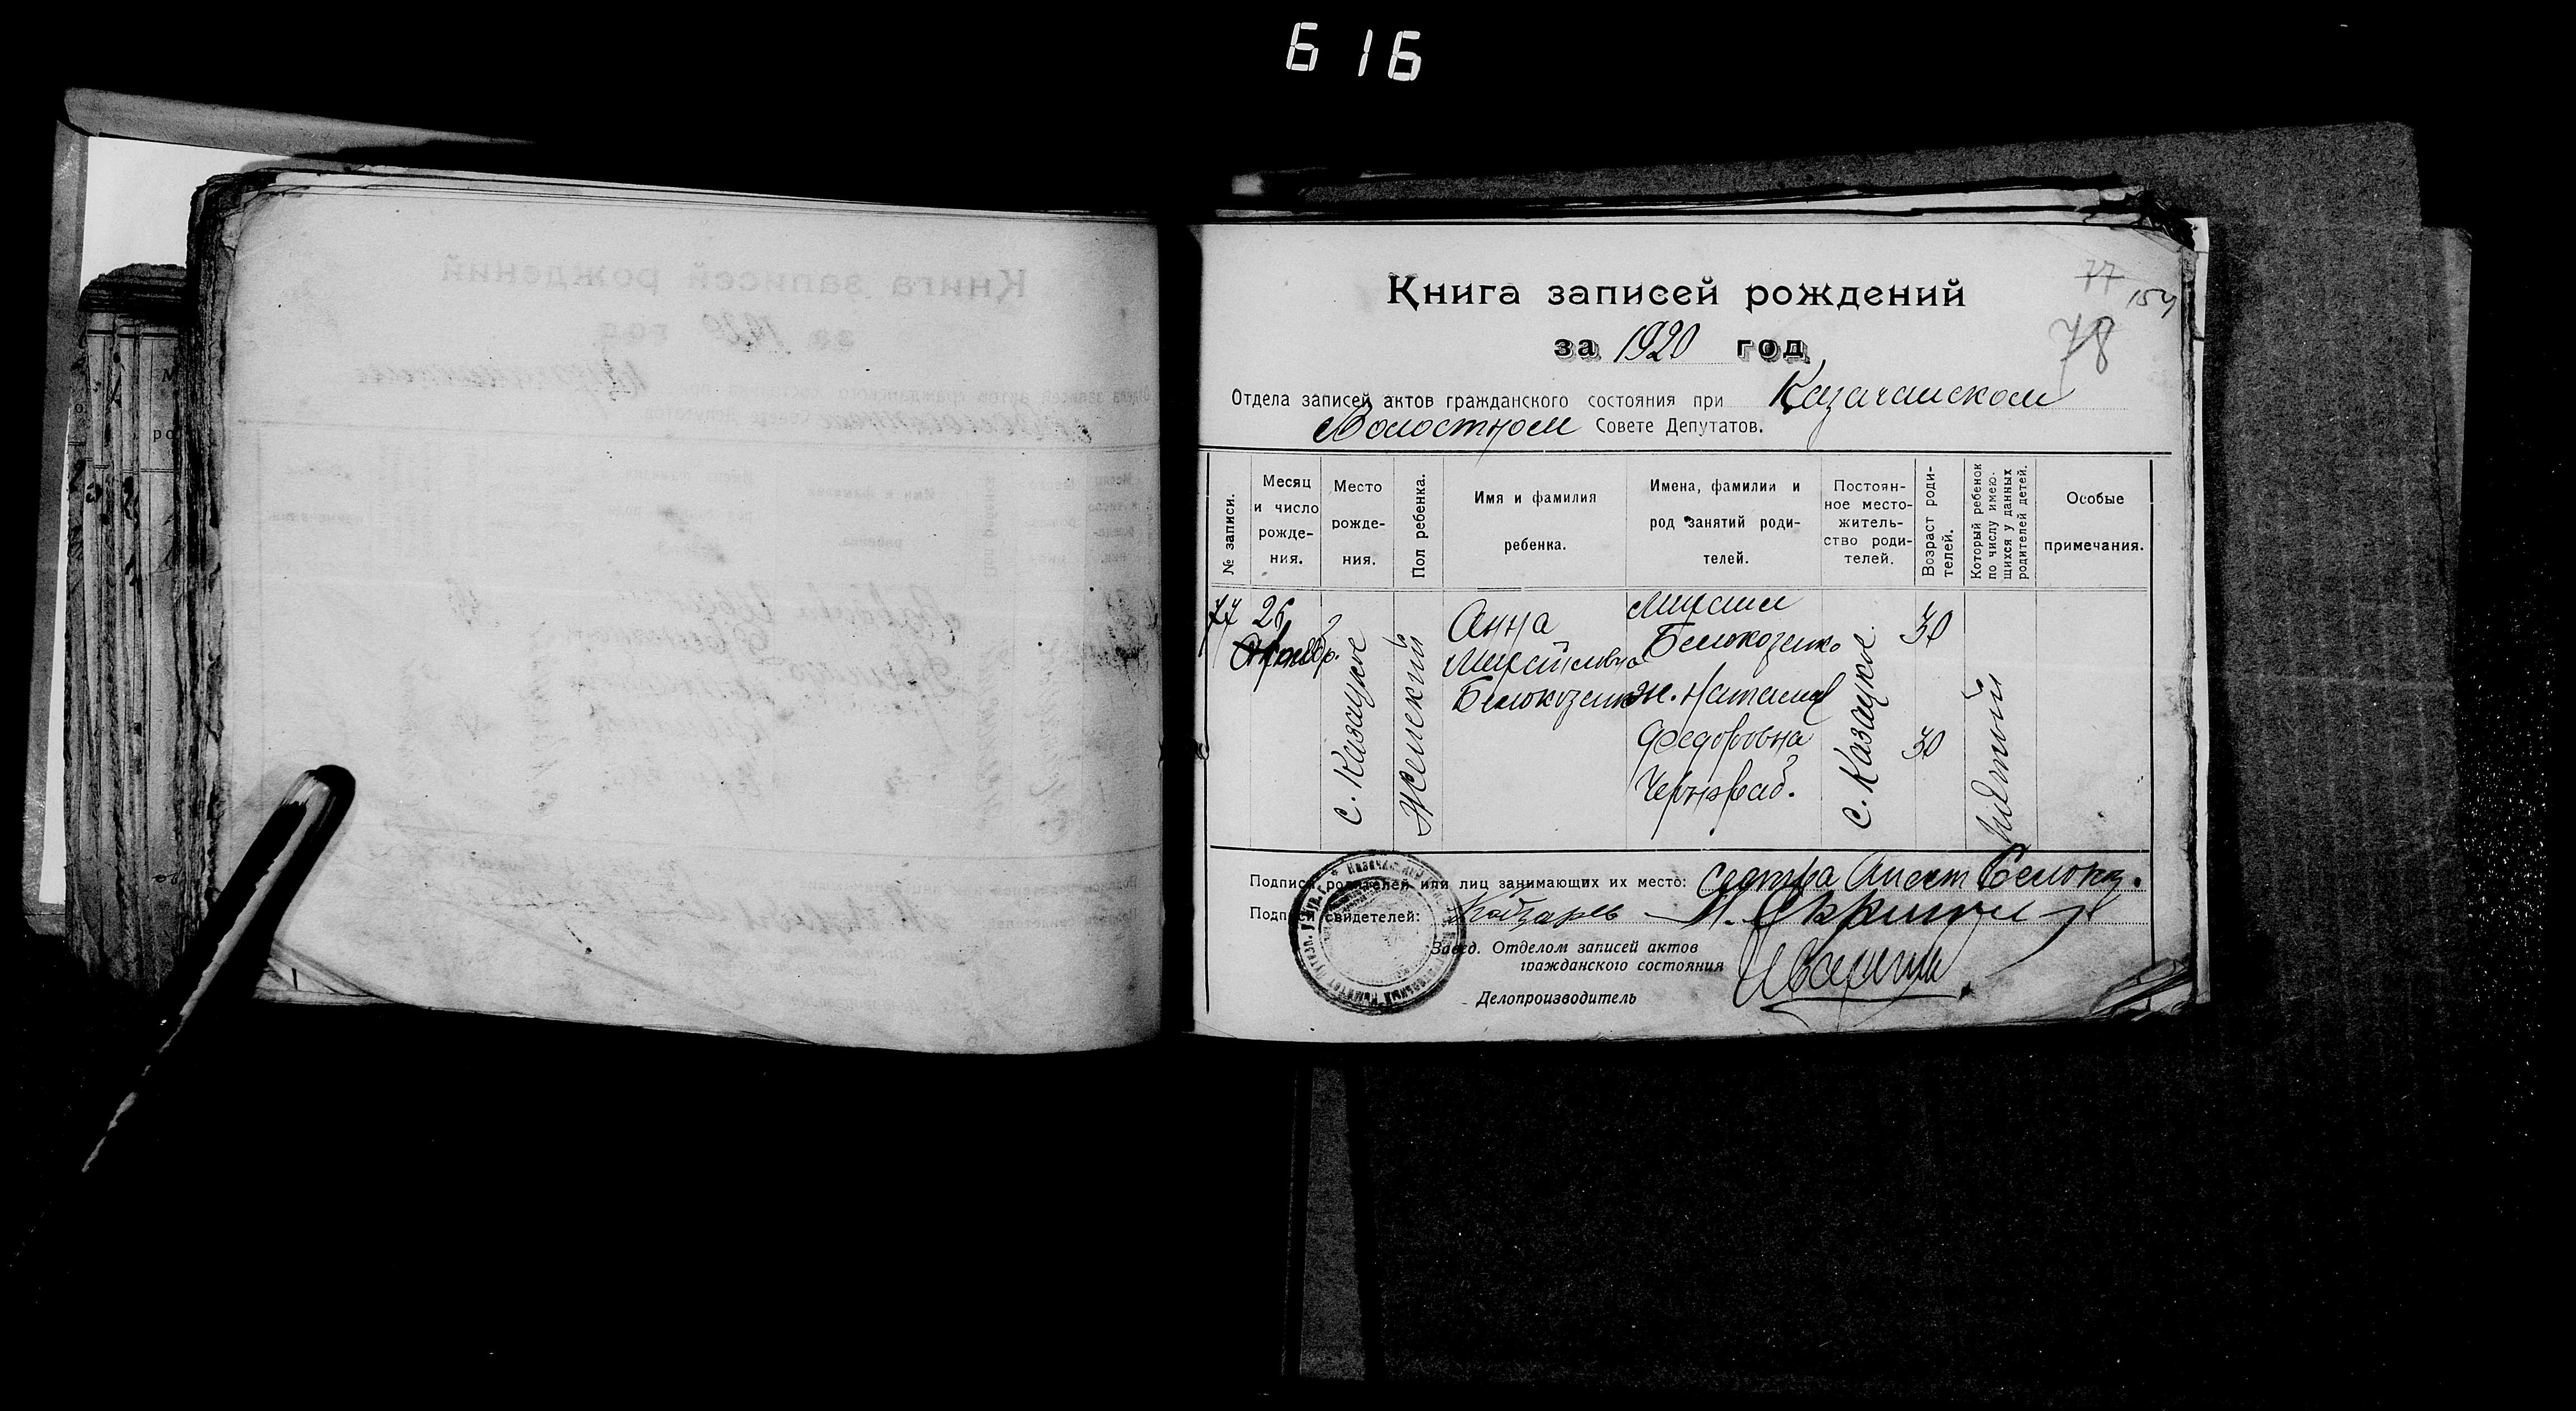 616
77
154
78
Книга записей рождений
за 1920 год
Отдела записей актов гражданского состояния при Казачанском
Волостном Совете Депутатов.
№ записи.
Месяц и число рожде- ния.
Место рожде- ния.
Пол ребенка.
Имя и фамилия ребенка.
Имена, фамилии и род занятий роди- телей.
Постоян- ное место- житель- ство роди- телей.
Возраст роди- телей.
Который ребенок по числу имею- щихся у данных родителей детей.
Особые примечания.
77
26
Октябр.
с. Казацкое
Женский
Анна
Михайловна
Белокозенко
Михаил
Белокозенко
ж. Наталия
Федоровна
с. Казацкое
30
30
пятый
Подписи родителей или лиц занимающих их место: сестра Анаст Белокоз.
Подписи свидетелей:
Завед. Отделом записей актов
гражданского состояния
Делопроизводитель